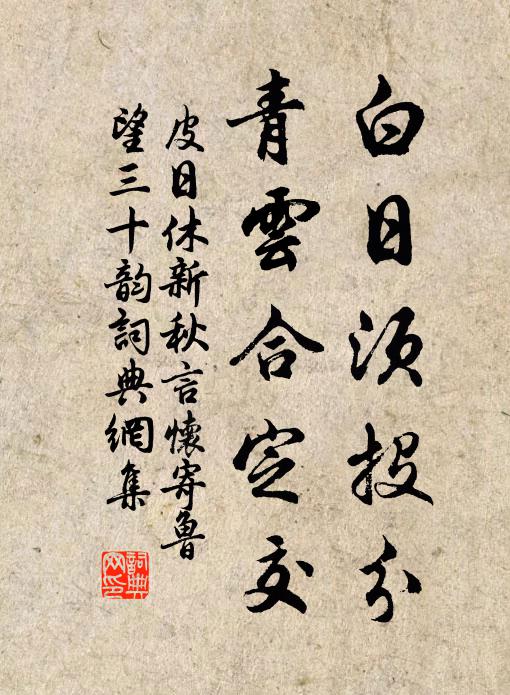 白日须投分
青雲合定交
皮日休新秋言懷寄魯
望三十韵詞典網集
詞典
网印